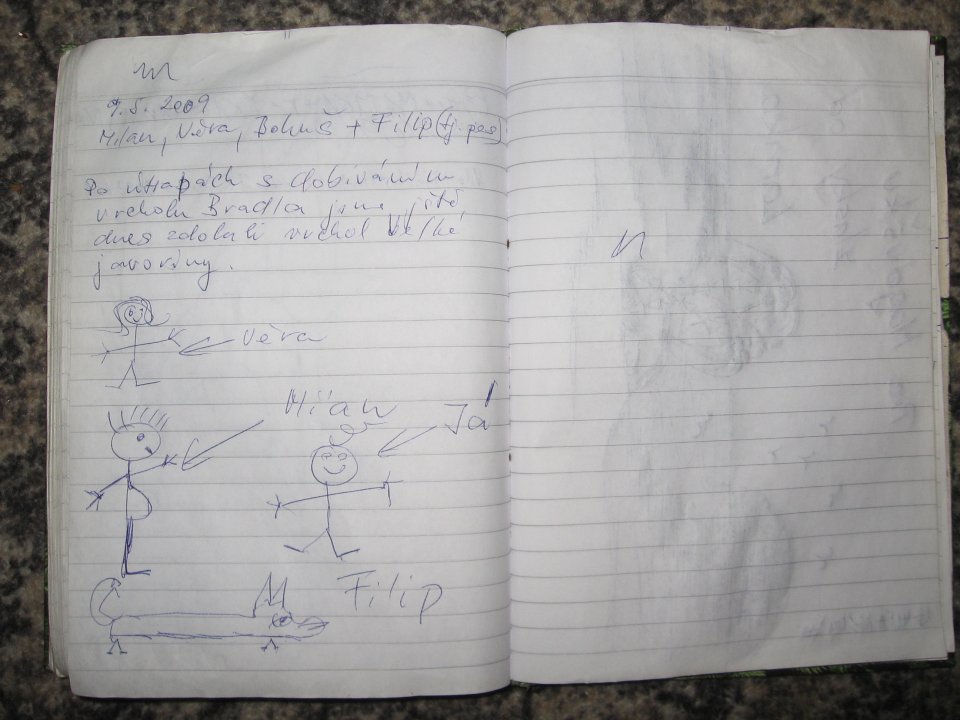 9.5.2009
Milan, Věra, Bohuš + Filip (tj. pes)
Po útrapách s dobíváním
vrcholu Bradla jsme ještě
dnes zdolali vrchol Velké
javořiny.
Věra
Milan
Já
Filip